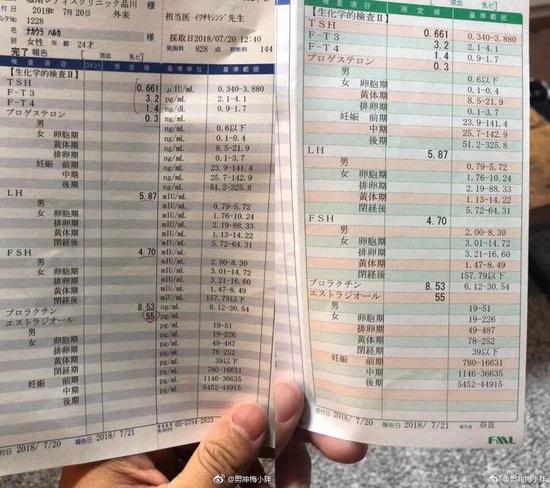 城南レディスクリニック品川 様
2018年 7月20日 外来
1228
ナカウラ ハルカ 様
女性 年齢 24才
担当医 イワサキシンジ先生
採取日2018/07/20 12:40
実施料 828点 判断料 144
完了 報告
検査項目 コメント 測定値 基準単位 基準範囲
【生化学的検査Ⅱ】
TSH 0.661 μIU/mL 0.340-3.880
F-T3 3.2 pg/mL 2.1-4.1
F-T4 1.4 ng/dL 0.9-1.7
プロゲステロン 0.3 ng/mL
男 ng/mL 0.6以下
女 卵胞期 ng/mL 0.1-0.4
黄体期 ng/mL 8.5-21.9
排卵期 ng/mL 0.1-3.7
妊娠 前期 ng/mL 23.9-141.4
中期 ng/mL 25.7-142.9
後期 ng/mL 51.2-325.8
LH 5.87 mIU/mL
男 mIU/mL 0.79-5.72
女 卵胞期 mIU/mL 1.76-10.24
排卵期 mIU/mL 2.19-88.33
黄体期 mIU/mL 1.13-14.22
閉経後 mIU/mL 5.72-64.31
FSH 4.70 mIU/mL
男 mIU/mL 2.00-8.30
女 卵胞期 mIU/mL 3.01-14.72
排卵期 mIU/mL 3.21-16.60
黄体期 mIU/mL 1.47-8.49
閉経後 mIU/mL 157.79以下
プロラクチン 8.53 ng/mL 6.12-30.54
エストラジオール 55 pg/mL
男 pg/mL 19-51
女 卵胞期 pg/mL 19-226
排卵期 pg/mL 49-487
黄体期 pg/mL 78-252
閉経後 pg/mL 39以下
妊娠 前期 pg/mL 780-16631
中期 pg/mL 1146-36635
後期 pg/mL 5452-44915
03-5754-2823
付日 2018/ 7/20 報告日 2018/ 7/21
検査項目 測定値 基準範囲
【生化学的検査Ⅱ】
TSH 0.661 0.340-3.880
F-T3 3.2 2.1-4.1
F-T4 1.4 0.9-1.7
プロゲステロン 0.3
男 0.6以下
女 卵胞期 0.1-0.4
黄体期 8.5-21.9
排卵期 0.1-3.7
妊娠 前期 23.9-141.4
中期 25.7-142.9
後期 51.2-325.8
LH 5.87
男 0.79-5.72
女 卵胞期 1.76-10.24
排卵期 2.19-88.33
黄体期 1.13-14.22
閉経後 5.72-64.31
FSH 4.70
男 2.00-8.30
女 卵胞期 3.01-14.72
排卵期 3.21-16.60
黄体期 1.47-8.49
閉経後 157.79以下
プロラクチン 8.53 6.12-30.54
エストラジオール 55
男 19-51
女 卵胞期 19-226
排卵期 49-487
黄体期 78-252
閉経後 39以下
妊娠 前期 780-16631
中期 1146-36635
後期 5452-44915
受付日 2018/ 7/20 報告日 2018/ 7/21 奈良
FML
@男神梅小胖
@男神梅小胖